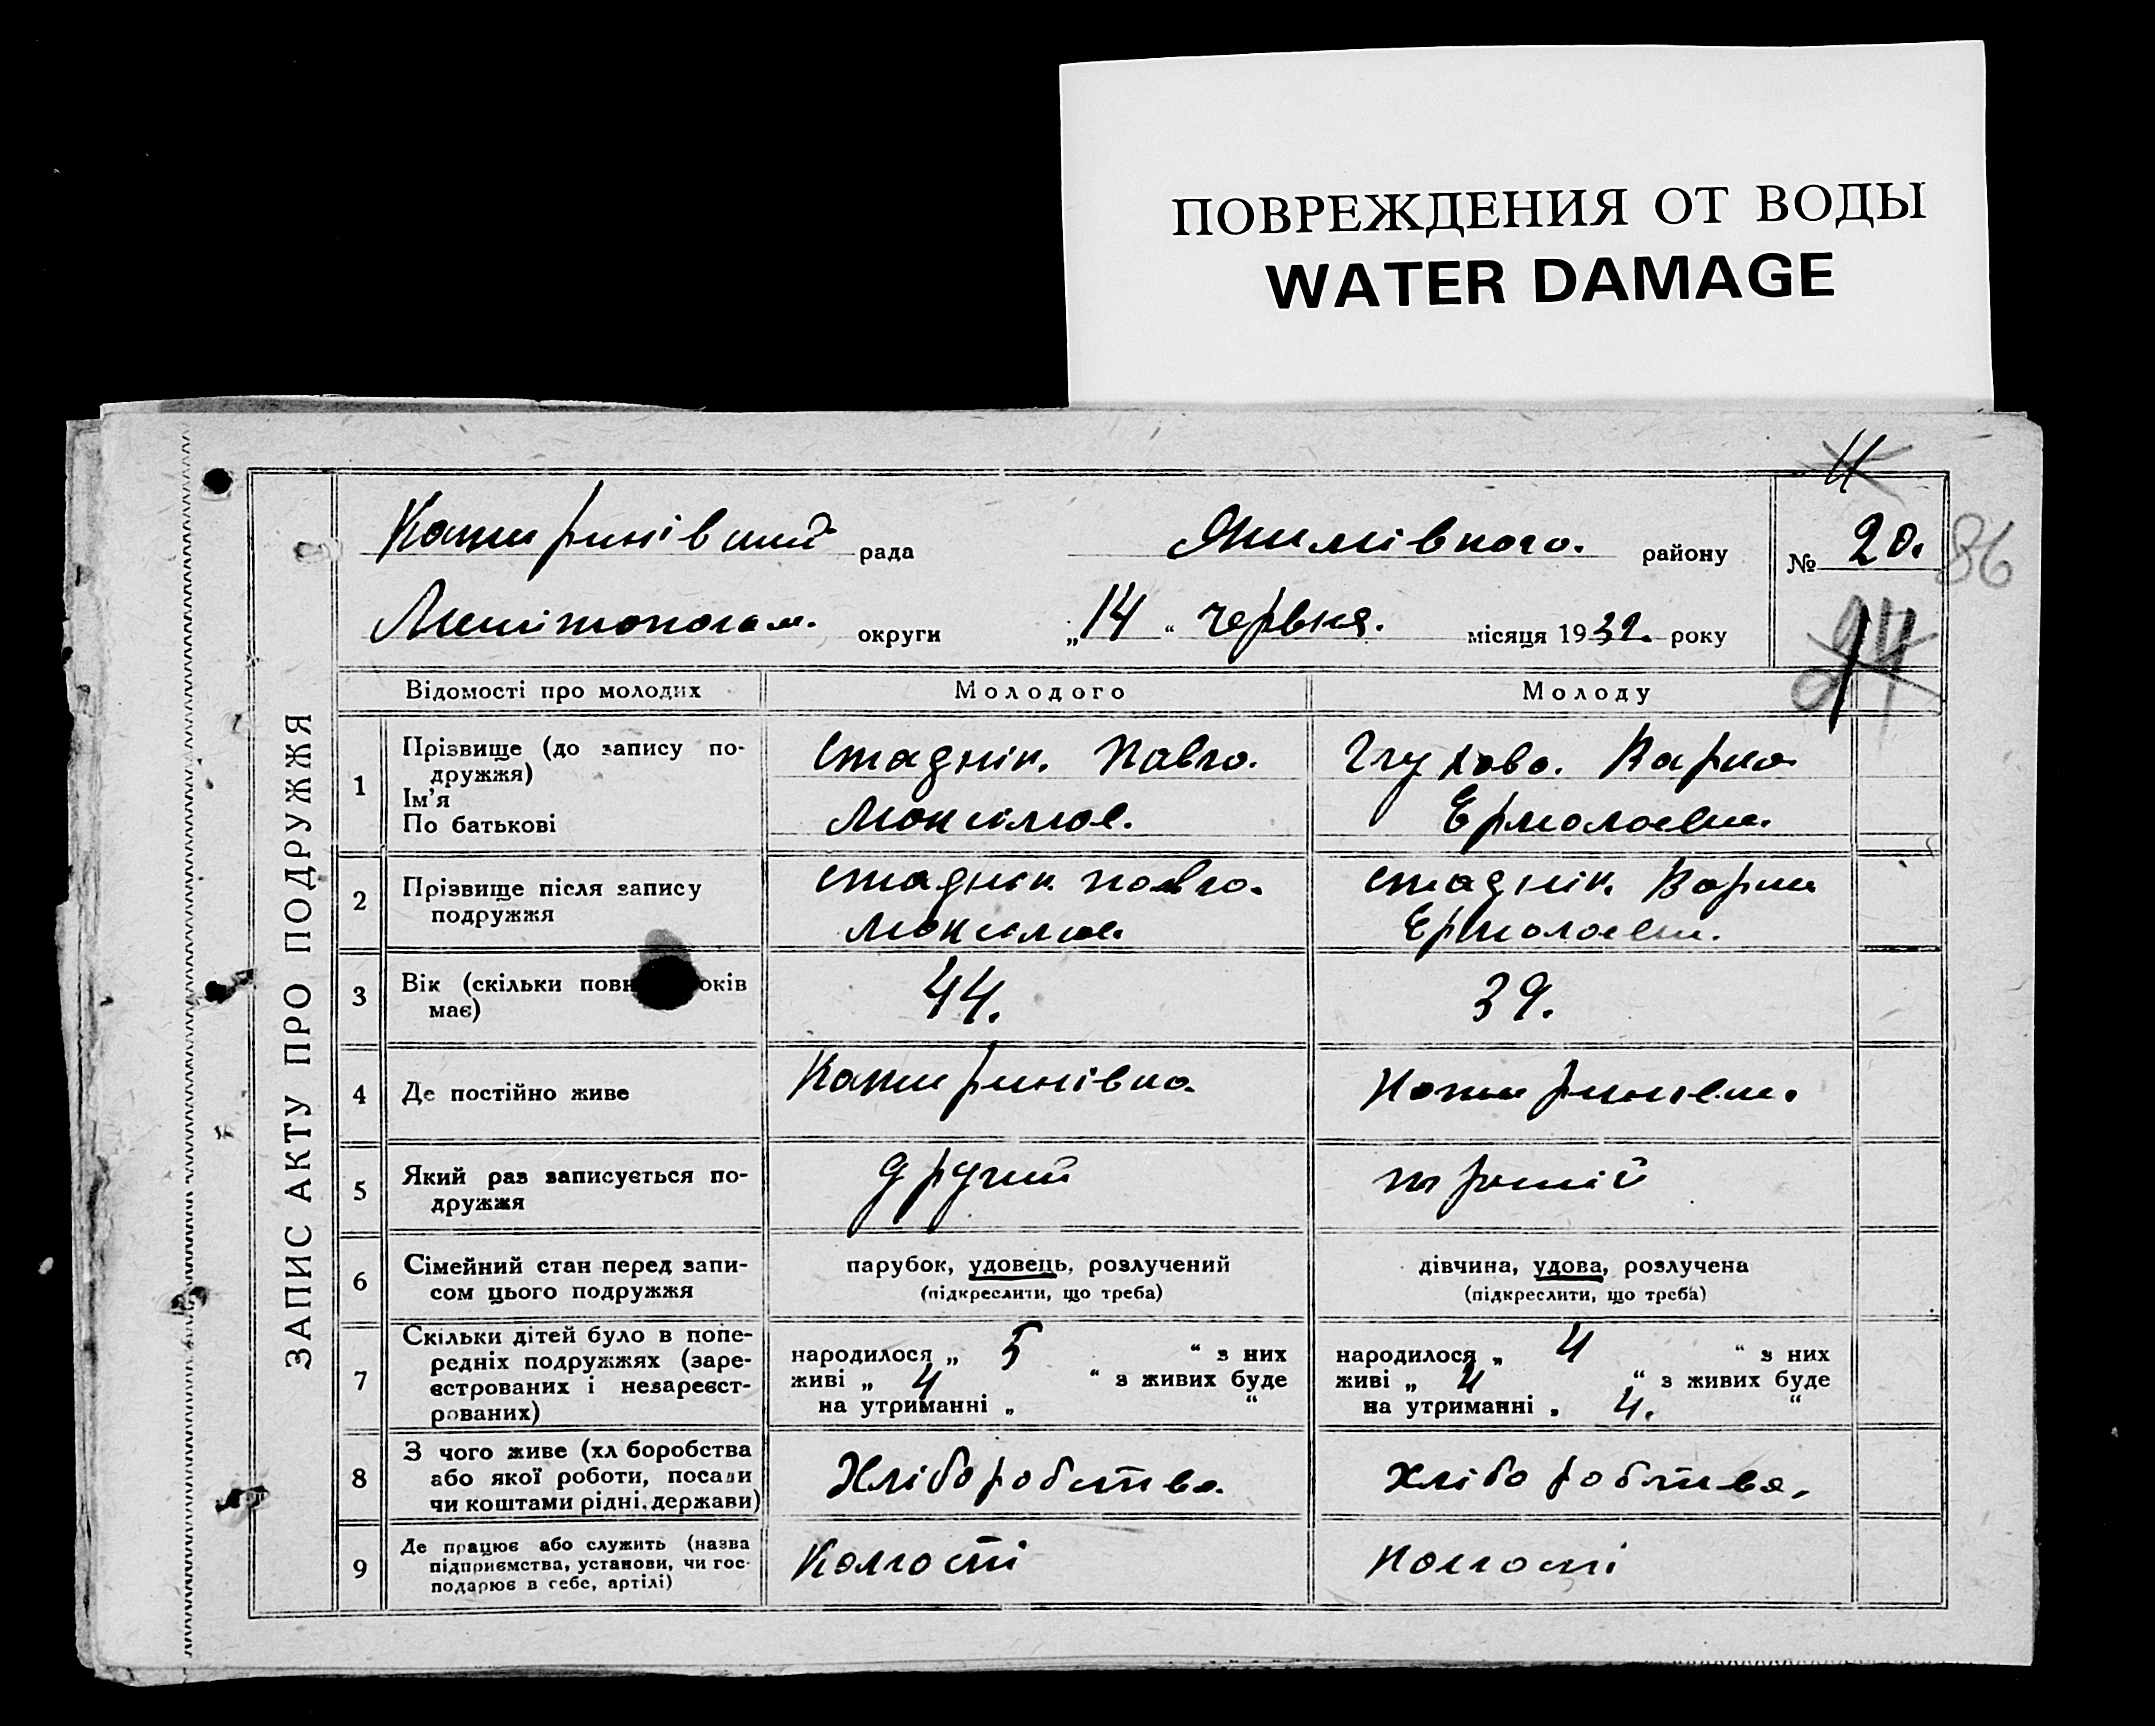 ПОВРЕЖДЕНИЯ ОТ ВОДЫ
WATER DAMAGE
ЗАПИС АКТУ ПРО ПОДРУЖЖЯ
рада
району
№ 20.
86
округи
„14“ червня. місяця 1932. року
Відомості про молодих
Молодого
Молоду
1
Прізвище (до запису по-
дружжя)
Ім'я
По батькові
Стаднік. Павло.
Ермолаевна.
2
Прізвище після запису
подружжя
Стаднік. Павло.
Стаднік. Варка
Ермолаевна.
3
Вік (скільки повн оків
має)
44.
39.
4
Де постійно живе
Катиринівка.
5
Який раз записується по-
дружжя
другий
третій
6
Сімейний стан перед запи-
сом цього подружжя
парубок, удовець, розлучений
(підкреслити, що треба)
дівчина, удова, розлучена
(підкреслити, що треба)
7
Скільки дітей було в попе-
редніх подружжях (заре-
єстрованих і незареєст-
рованих)
народилося „ 5 “ з них
живі „ 4 “ з живих буде
на утриманні „ “
народилося „ 4 “ з них
живі „ 4 „ з живих буде
на утриманні „ 4. “
8
З чого живе (хл боробства
або якої роботи, посади
чи коштами рідні, держави)
Хліборобства.
Хліборобства.
9
Де працює або служить (назва
підприємства, установи, чи гос-
подарює в себе, артілі)
Колгоспі
Колгоспі